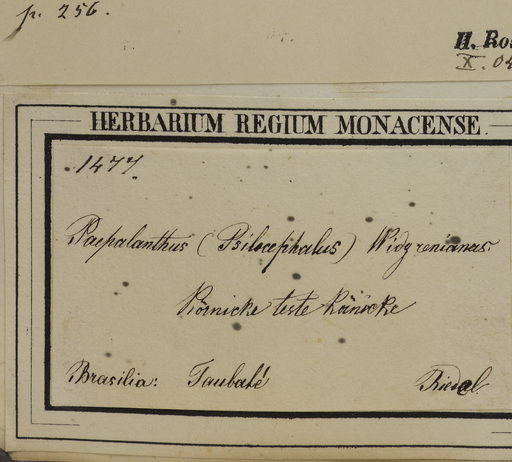 p. 256.
H. Ros
X. 04
HERBARIUM REGIUM MONACENSE.
1477.
Paepalanthus (Psilocephalus) Widgrenianus
Körnicke teste Körnicke
Brasilia: Taubaté Riedel.